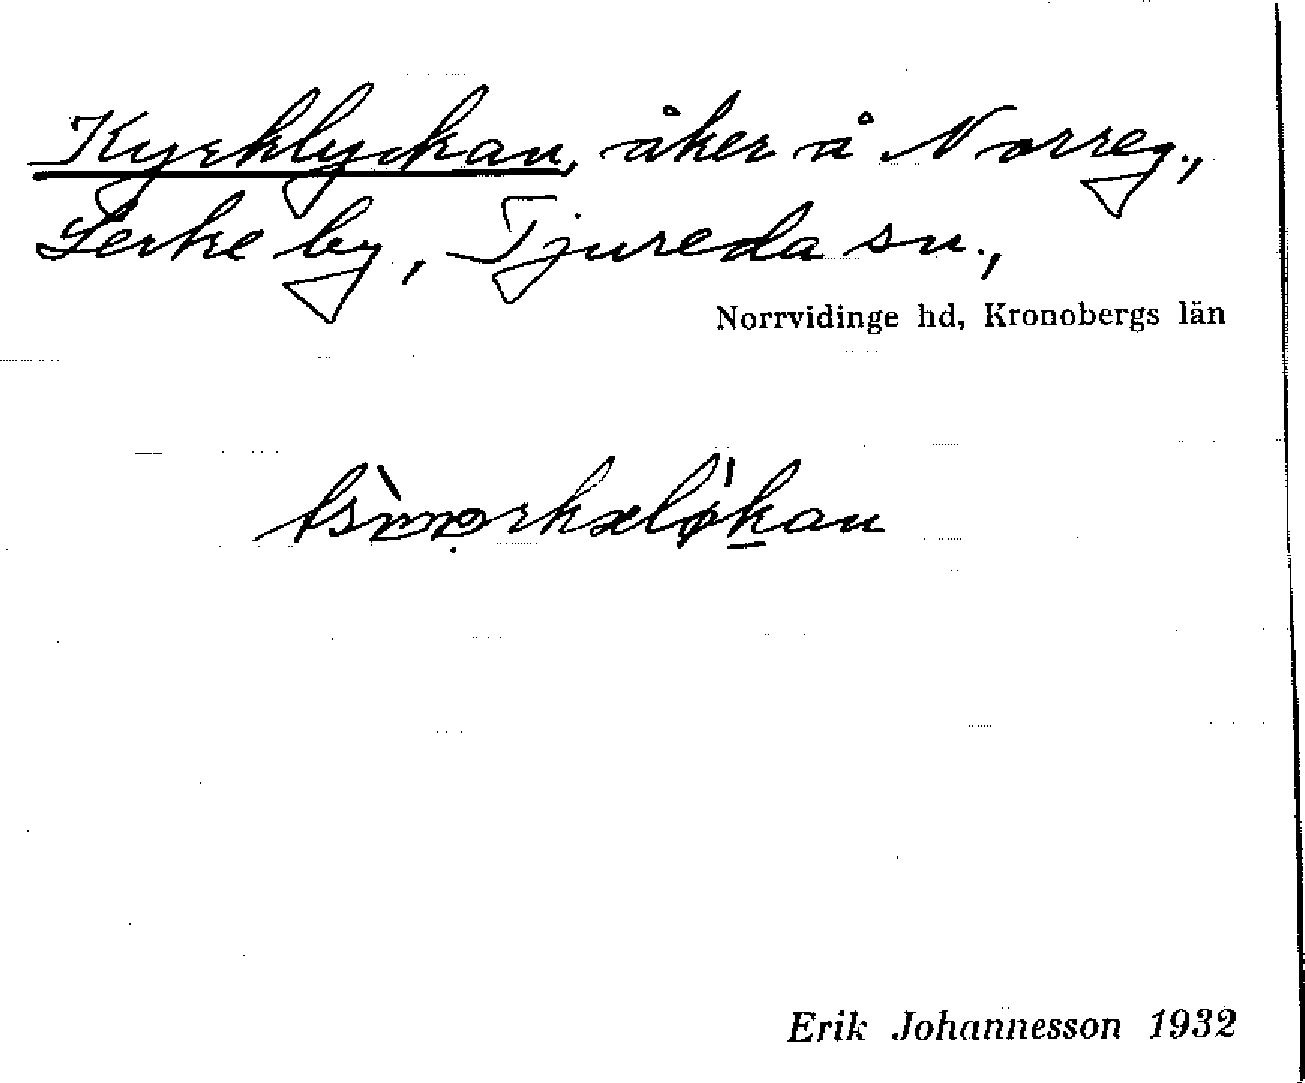 Kyrklyckan, åker å Norreg.,
Lerke by, Tjureda sn.,
Norrvidinge hd, Kronobergs län
Erik Johannesson 1932